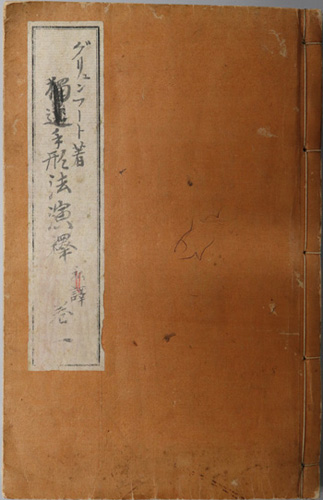 グリュンフート著
獨逸手形法演繹 譯 卷一